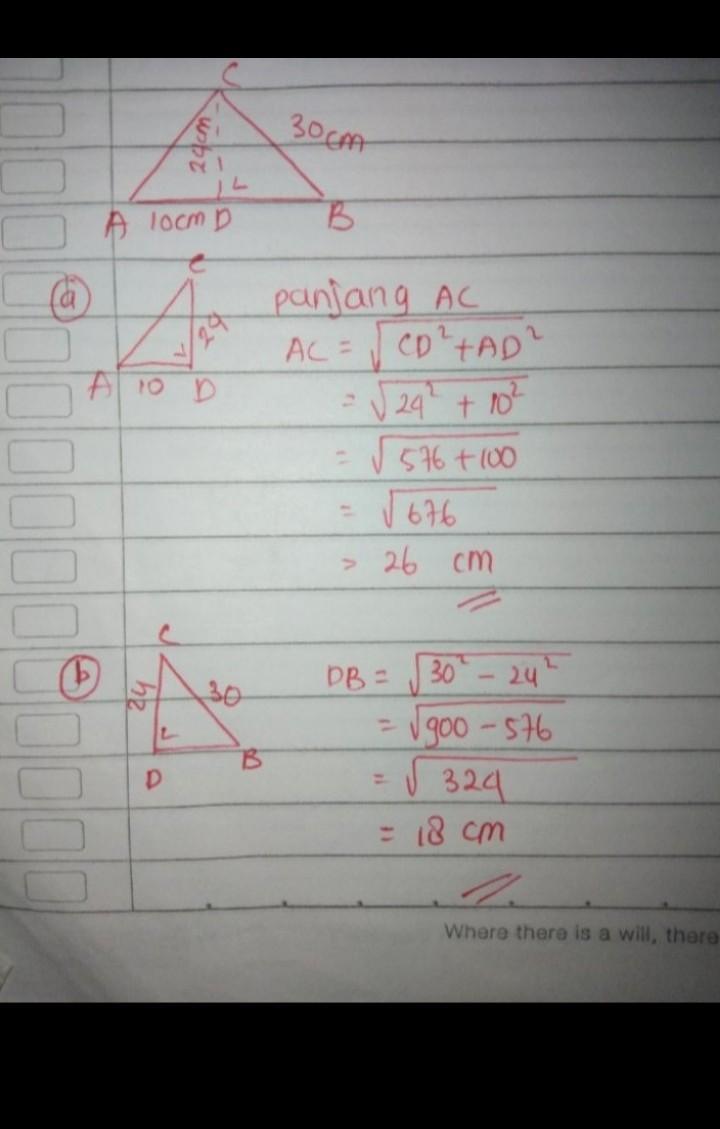 C
24cm
30cm
A 10cm D B
C
ⓐ
24
A 10 D
panjang AC
AC = √CD² + AD²
= √24² + 10²
= √576 + 100
= √676
= 26 cm
C
ⓑ
24
30
D B
DB = √30² - 24²
= √900 - 576
= √324
= 18 cm
Where there is a will, there